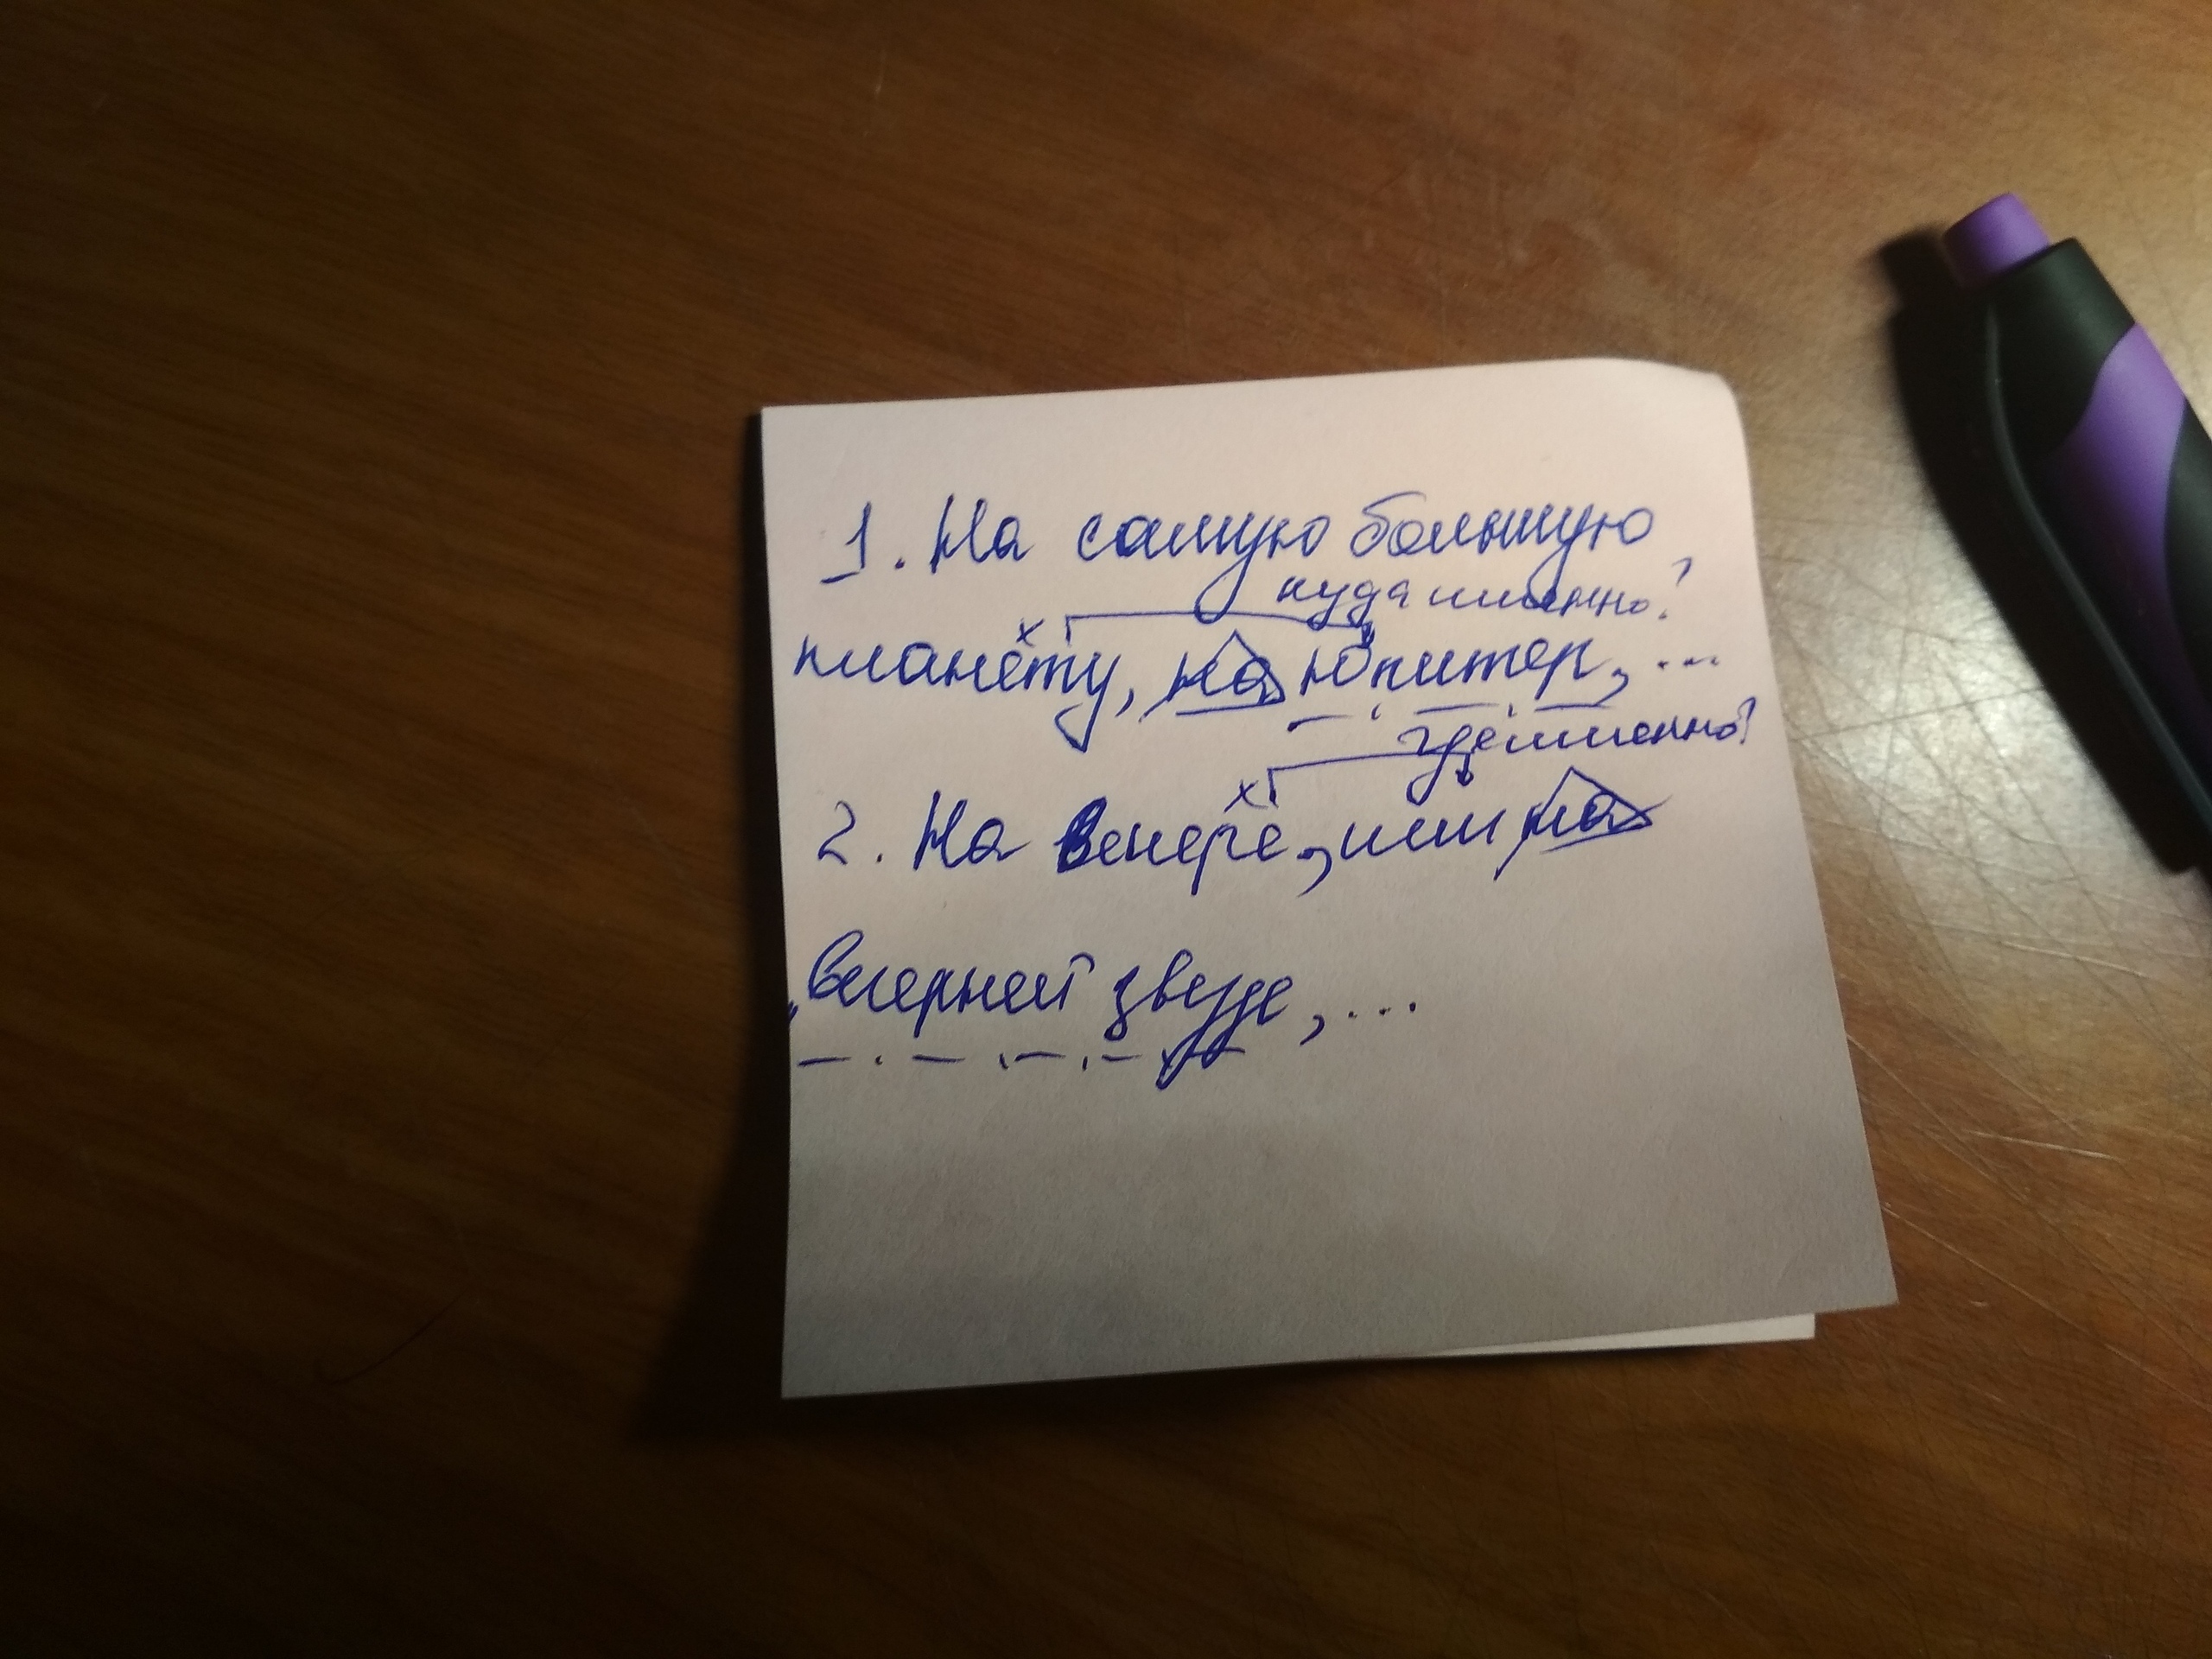 1. На самую большую
куда именно?
планету, на Юпитер, ...
где именно?
2. На Венере, или на
"вечерней звезде, ...